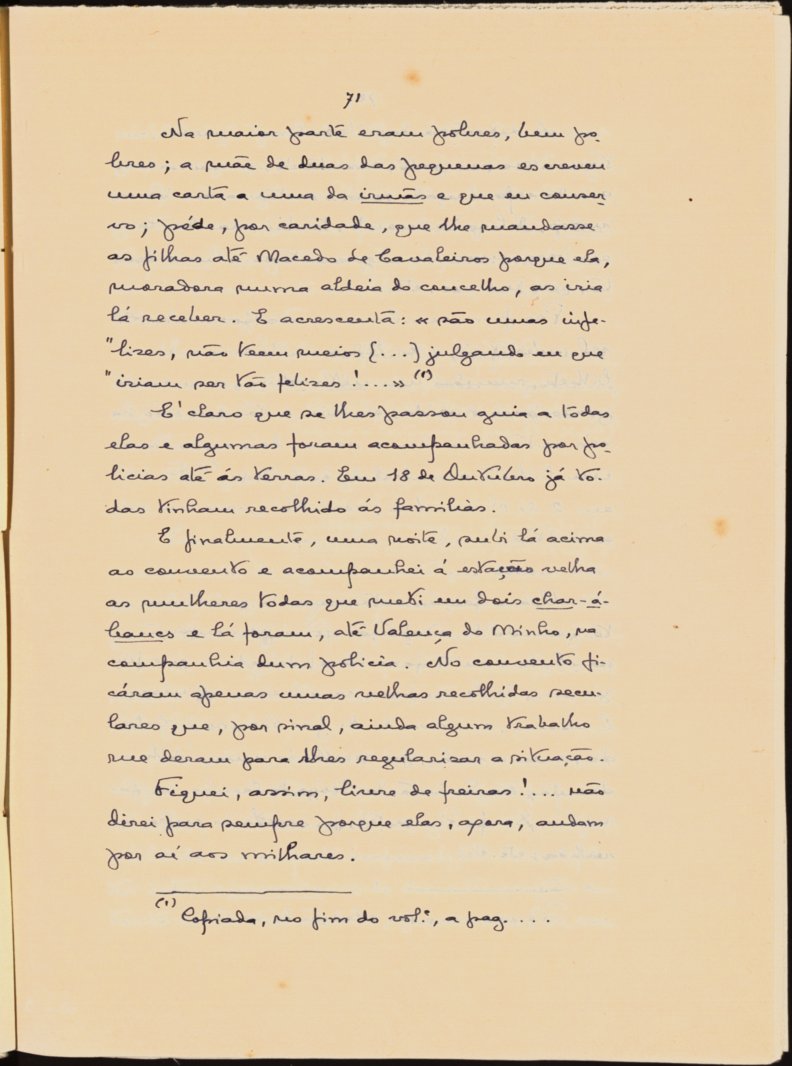 71
Na maior parte eram pobres, bem po-
bres; a mãe de duas das pequenas escreveu
uma carta a uma da irmãs e que eu conser-
vo; péde, por caridade, que lhe mandasse
as filhas até Macedo de Cavaleiros porque ela,
moradora numa aldeia do concelho, as iria
lá receber. E acrescenta: « são umas infe-
"lises, não teem meios (...) julgando eu que
"iriam ser tão felises!...» (1)
E' claro que se lhes passou guia a todas
elas e algumas foram acompanhadas por po-
licias até ás terras. Em 18 de Outubro já to-
das tinham recolhido ás familias.
E finalmente, uma noite, subi lá acima
ao convento e acompanhei á estação velha
as mulheres todas que meti em dois char-á-
bancs e lá foram, até Valença do Minho, na
companhia dum policia. No convento fi-
cáram apenas umas velhas recolhidas secu-
lares que, por sinal, ainda algum trabalho
me deram para lhes regularisar a situação.
Fiquei, assim, livre de freiras!... não
direi para sempre porque elas, agora, andam
por aí aos milhares.
(1) Copiada, no fim do vol.º, a pag. ...